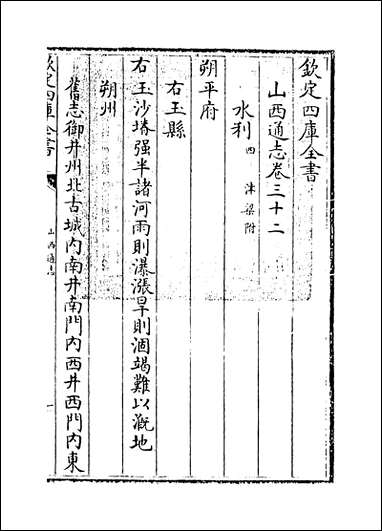 欽定四庫全書
山西通志卷三十二
水利四 津梁附
朔平府
右玉縣
右玉沙堾强半諸河雨則瀑漲旱則涸竭難以溉地
朔州
舊志御井州北古城内南井南門内西井西門内東
欽定四庫全書
山西通志
一